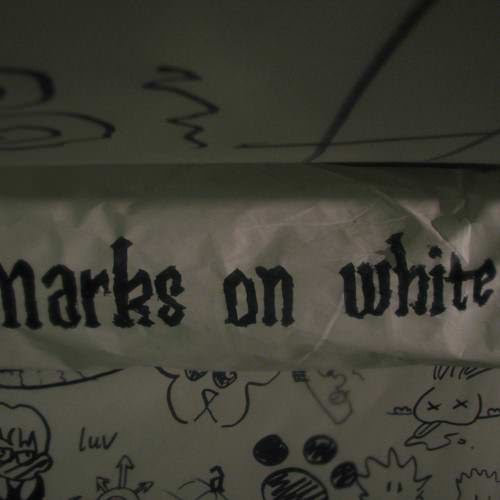 marks on white
luv